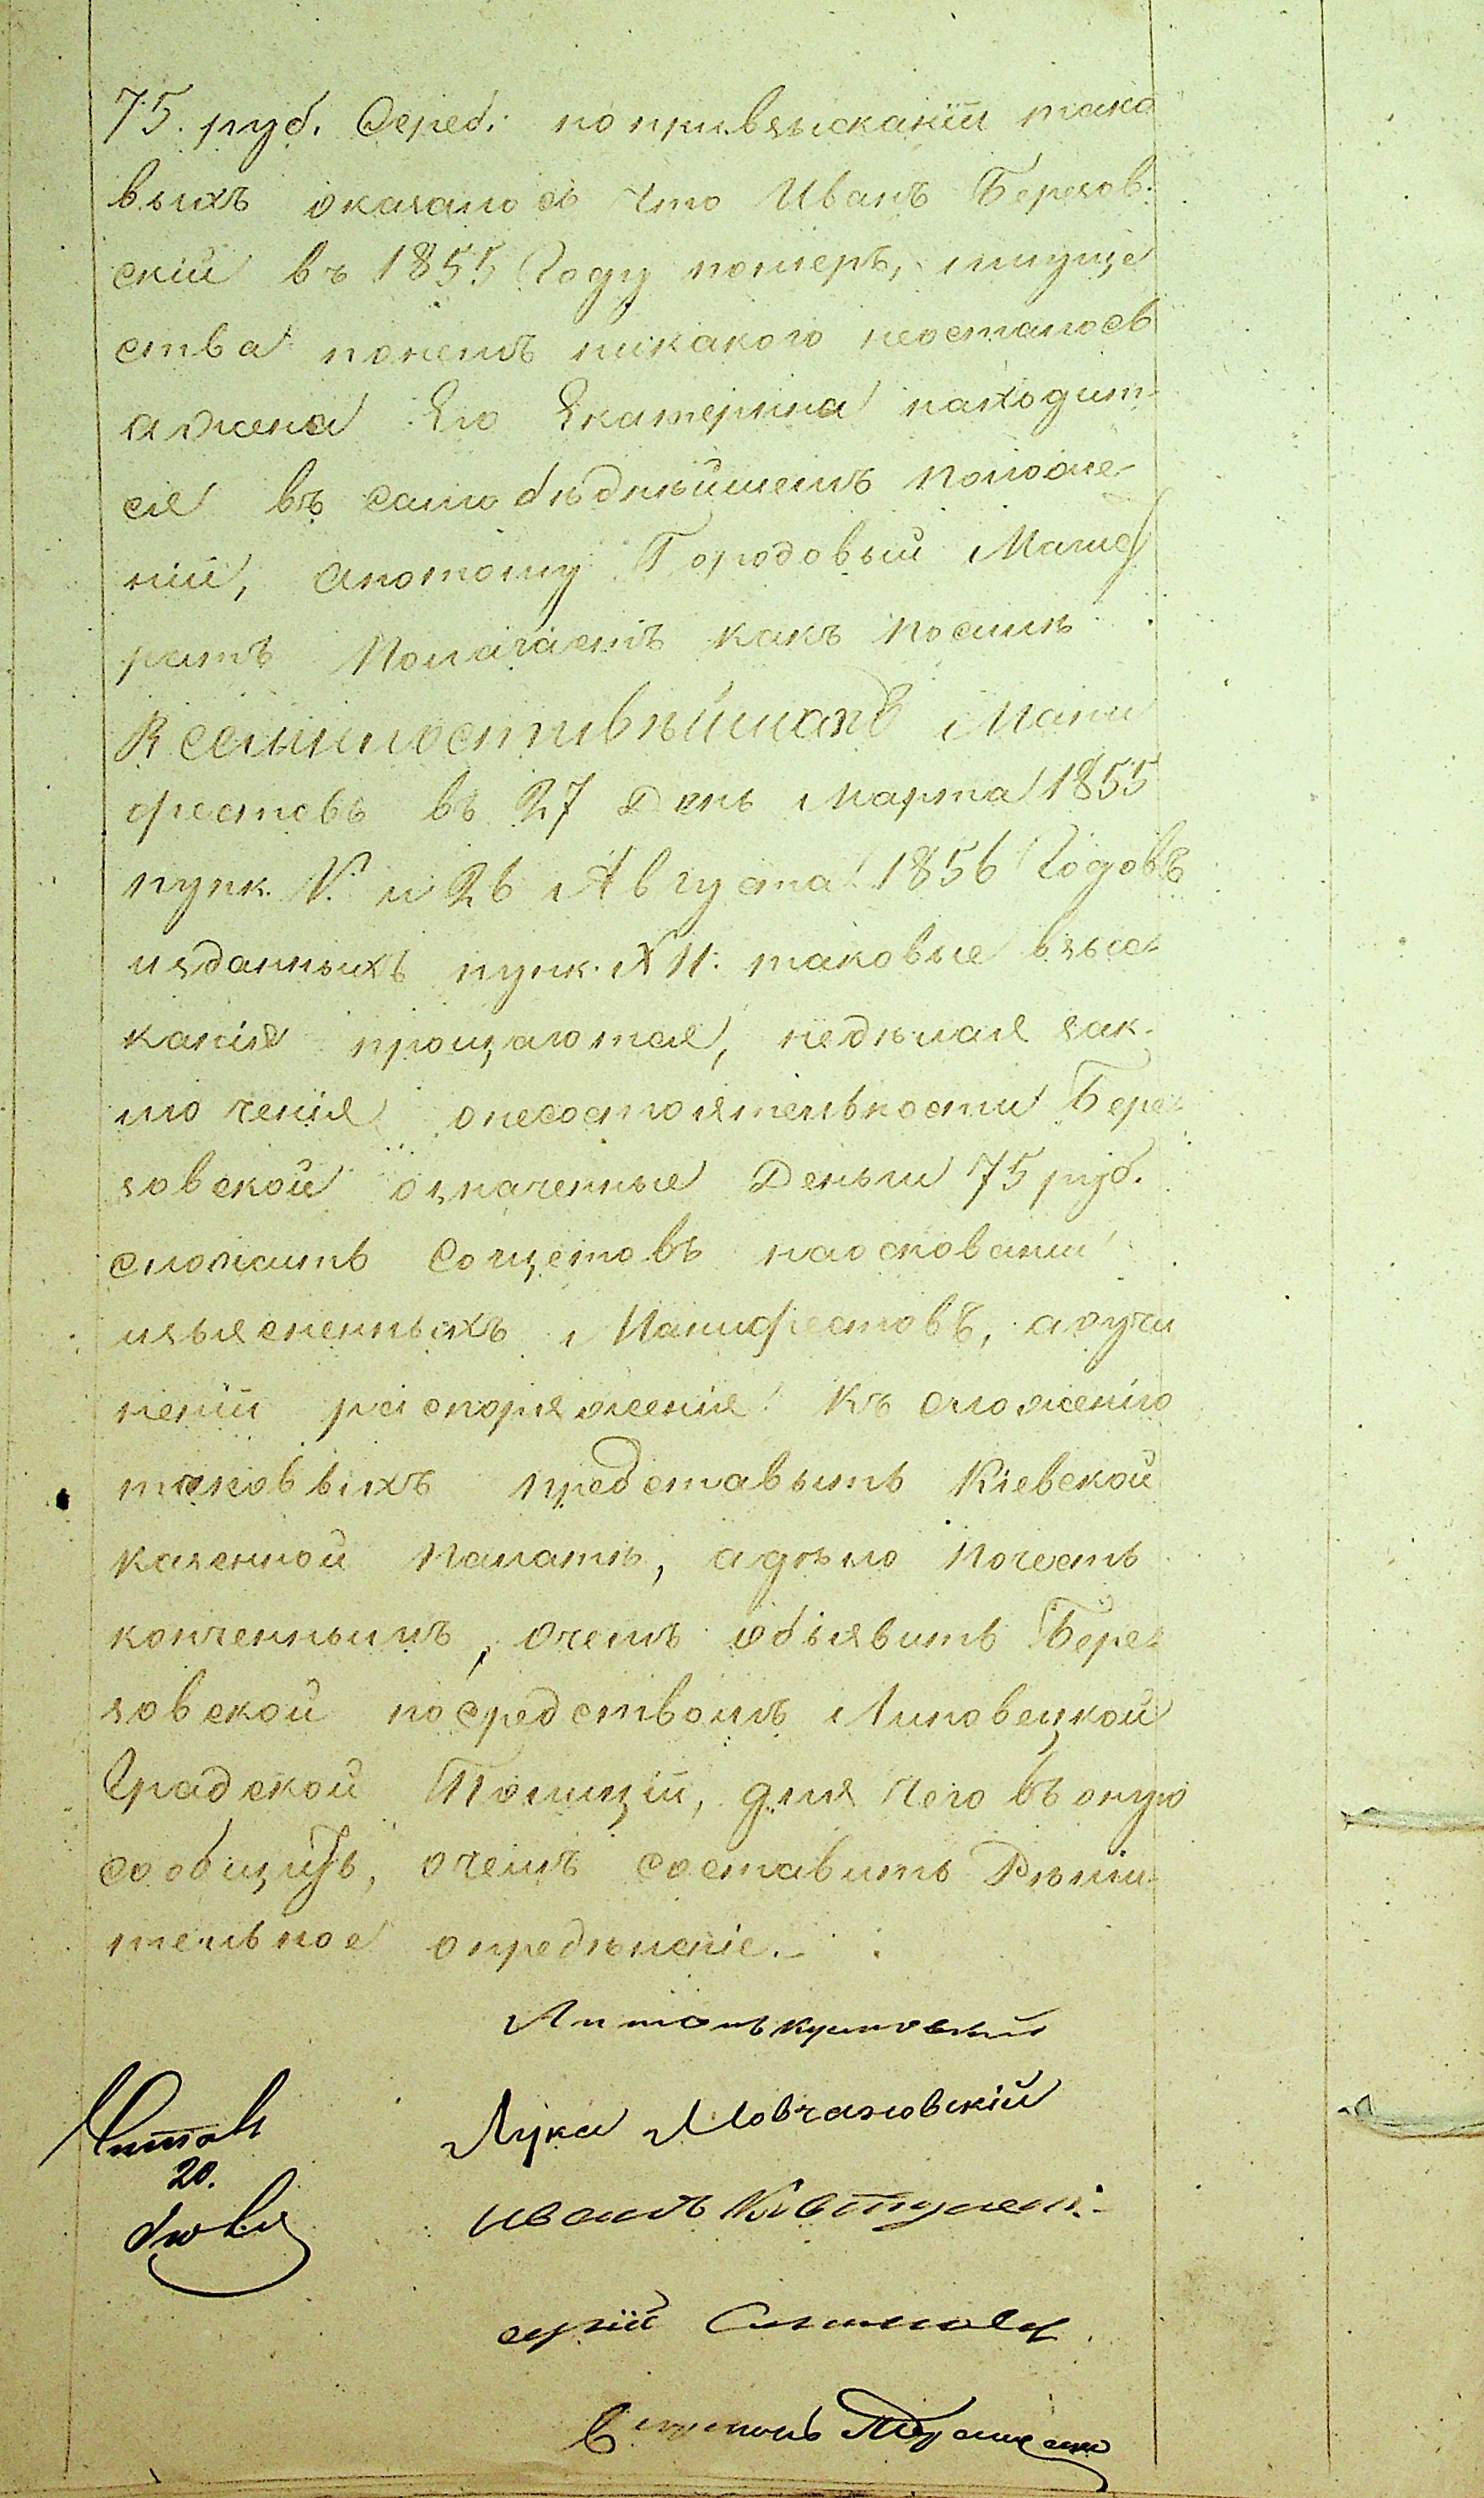 75. руб. Сереб: но при взысканіи тако
выхъ оказалось что Иванъ Березов-
скій въ 1855 Году померъ, имуще
ства понемъ никакого неосталось
а жена Его Екатерина находит-
ся въ само бѣднѣйшемъ положе-
ніи, апотому Городовый Магист
ратъ Полагаетъ какъ посилѣ
Всемилостивѣйшихъ Мани
фестовъ въ 27 День Марта 1855
пунк. V. и 26 Августа 1856 Годовъ
изданныхъ пунк. XII: таковые взыс-
канія прощаются, недѣлая зак-
люченія онесостоятельности Бере-
зовской означенные Деньги 75 руб.
сложить Сощетовъ наосновании
изъясненныхъ Манифестовъ, аоучи
неніи распоряженія къ сложенію
таковыхъ представить Кіевской
казенной Палатѣ, адѣло Почесть
конченнымъ, Очемъ объявить Бере-
зовской посредствомъ Липовецкой
Градской Полиціи, для чего въ оную
сообщить, очемъ составить Рѣши-
тельное опредѣленіе.
Лука Мовчановскій
Читалъ
20.
Иванъ